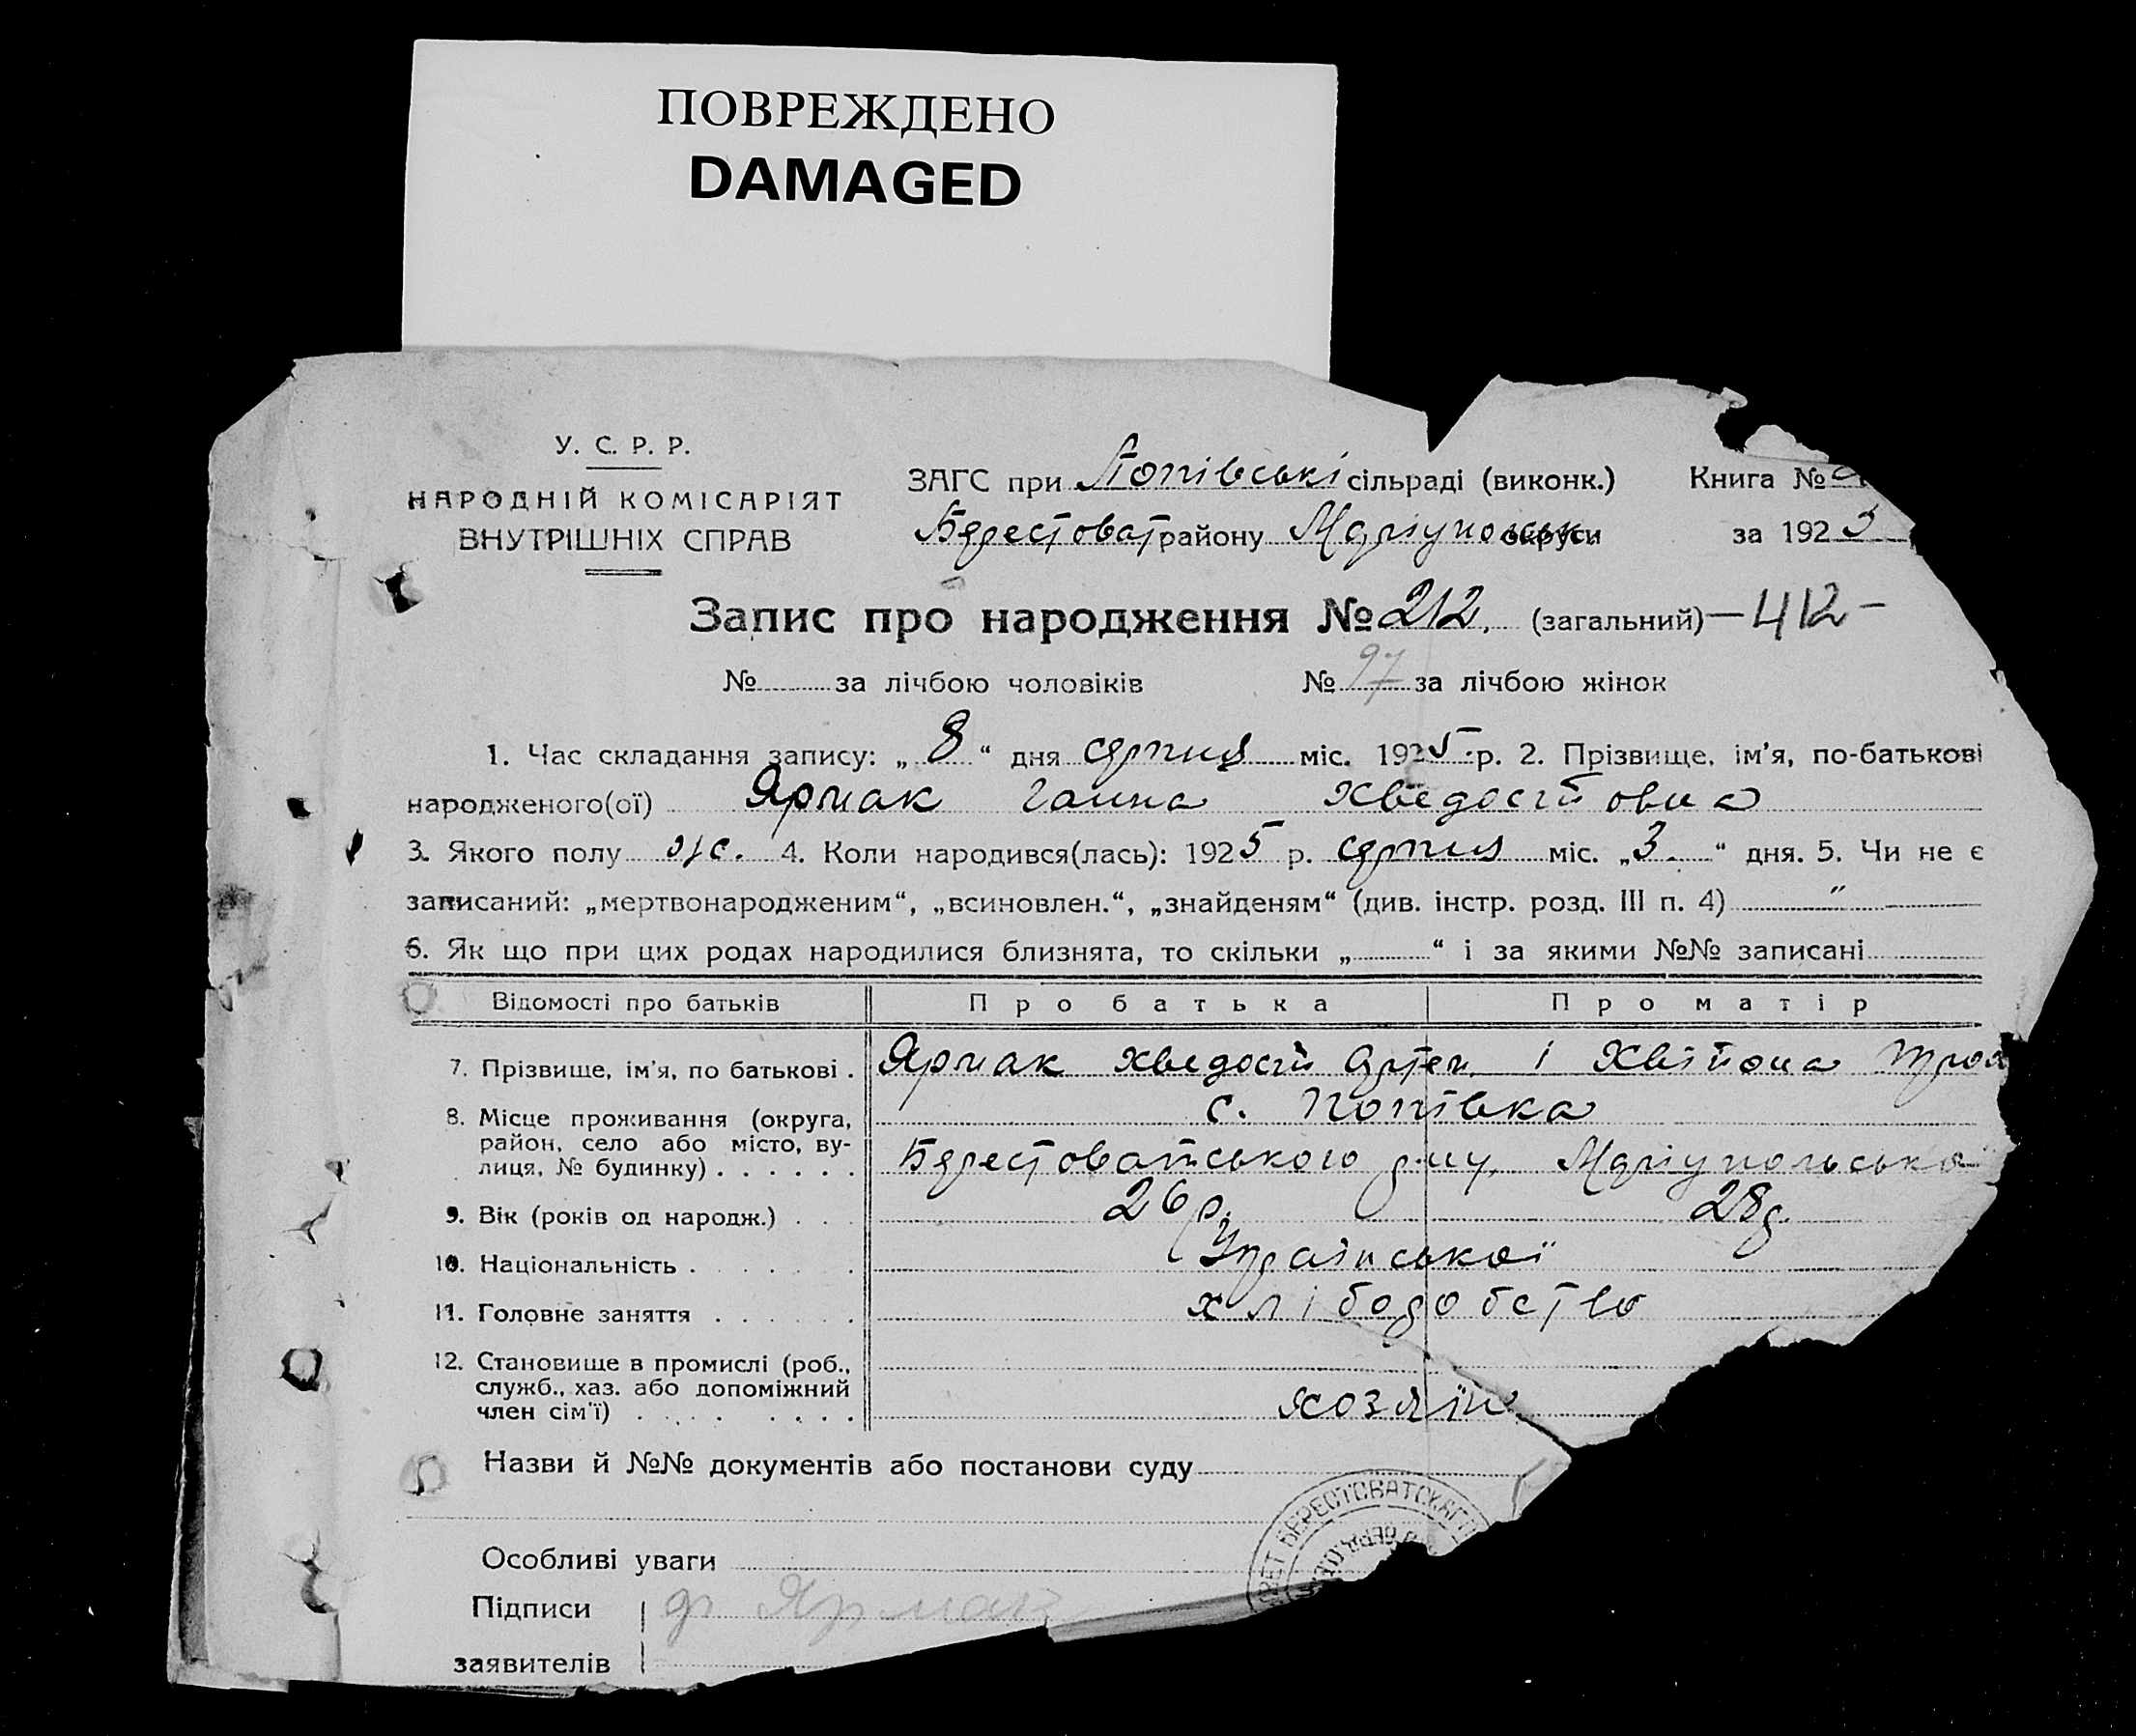 ПОВРЕЖДЕНО
DAMAGED
У. С. Р. Р.
НАРОДНІЙ КОМІСАРІЯТ
ВНУТРІШНІХ СПРАВ
ЗАГС при Попівські сільраді (виконк.) Книга №
Берестоват району Маріупольськ. округи за 192
Запис про народження № 212. (загальний) —412—
№ за лічбою чоловіків № 97 за лічбою жінок
1. Час складання запису: „ 8 “ дня серпня міс. 1925 р. 2. Прізвище, ім’я, по-батькові
народженого(ої) Ярмак Ганна Хведосіїовна
3. Якого полу ж. 4. Коли народився(лась): 1925 р. серпня міс. „ 3. “ дня. 5. Чи не є
записаний: „мертвонародженим“, „всиновлен.“, „знайденям“ (див. інстр. розд. III п. 4) ״
6. Як що при цих родах народилися близнята, то скільки „ “ і за якими №№ записані
Відомості про батьків Про батька Про матір
7. Прізвище, ім’я, по батькові . Ярмак Хведосій Артем. і Хвійона
8. Місце проживання (округа, с. Попівка
район, село або місто, ву-
лиця, № будинку) . . . . . . Берестоватського р-ну, Маріупольсько
9. Вік (років од народж.) . . . 26 р. 28 р.
10. Національність . . . . . . Українськоі
11. Головне заняття . . . . . . хліборобство
12. Становище в промислі (роб.,
служб., хаз. або допоміжний
член сім’ї) . . . . . . . . . хозяїн
Назви й №№ документів або постанови суду
БЕРЕСТОВАТСКАГО
Особливі уваги
Підписи Ф Ярмак
заявителів